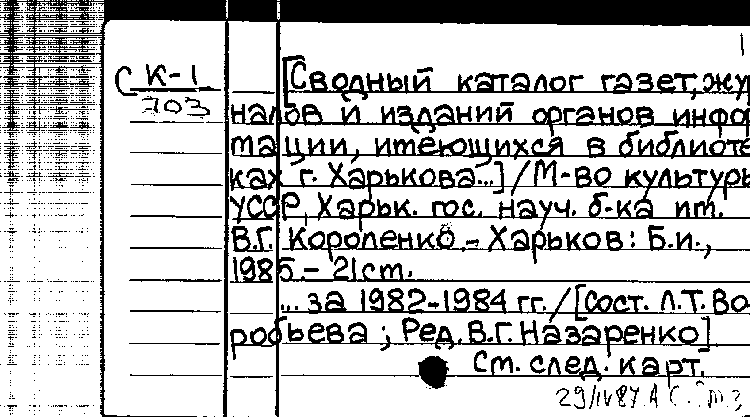 1
С К-1 [Сводный каталог газет, жур
703 налов и изданий органов инфор
мации, имеющихся в библиоте
ках г. Харькова...] / М-во культуры
УССР, Харьк. гос. науч. б-ка им.
В.Г. Короленко. - Харьков: Б.и.,
1985. - 21 cm.
... за 1982-1984 гг. / [Сост. Л.Т. Во
робьева ; Ред. В.Г. Назаренко]
См. след. карт.
29/IV87